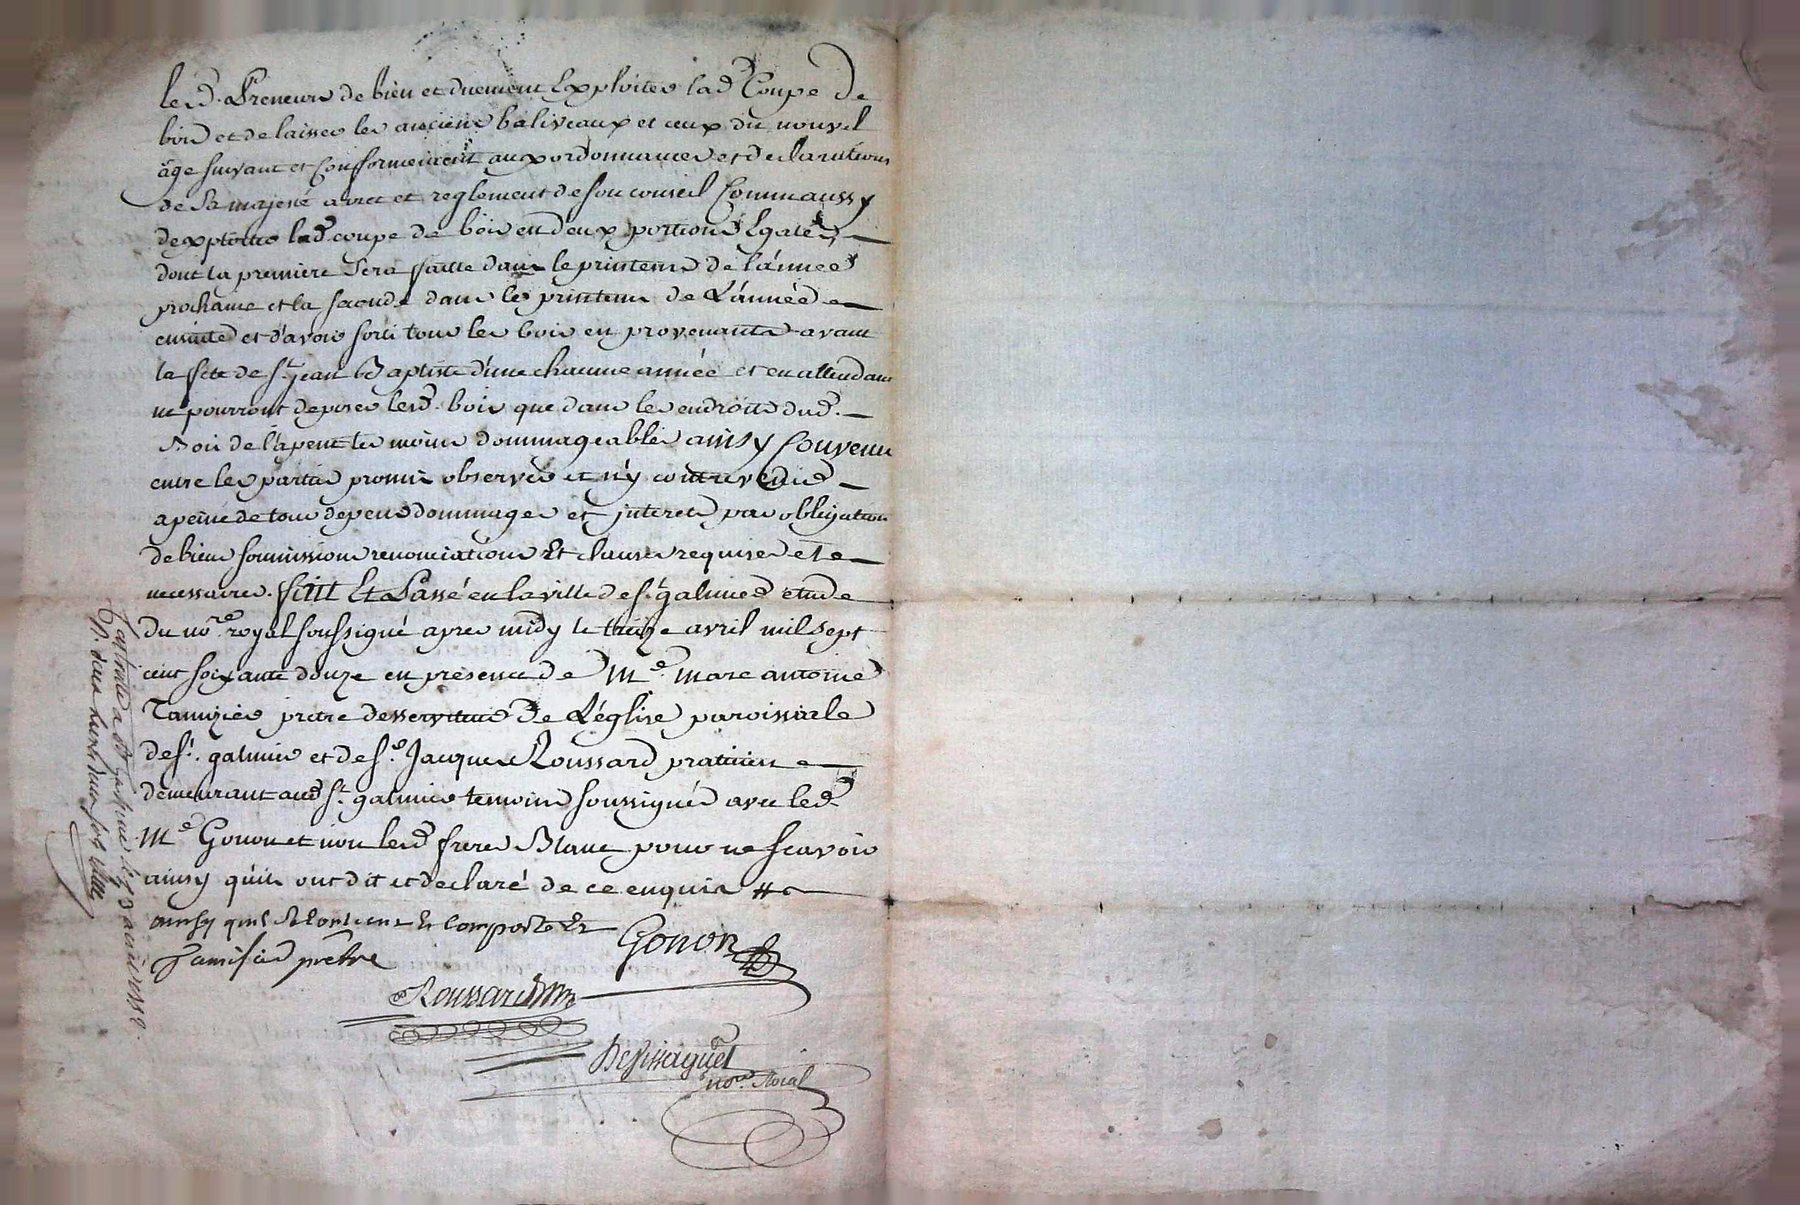 lesd. Preneurs de bien et duement Exploiter lad. Coupe de
bois et de laisser les anciens baliveaux et ceux du nouvel
âge suivant et Conformement aux ordonnances et declarations
de Sa majesté arret et reglement de son conseil Comm'aussy
dexploiter lad. coupe de bois en deux portions Egales
dont la premiere sera faitte dans le printems de l'année
prochaine et la seconde dans le printems de L'année
ensuite et d'avoir sorti tous les bois en provenants avant
la fete de St. jean Baptiste d'une chacune année et en attendant
ne pourront deposer lesd. bois que dans les endroits dud.
Bois de l'apent les moins dommageables ainsy Convenu
entre les parties promis observer et n'y contrevenir
a peine de tous depens dommages et jnterets par obligation
de biens soumissions renonciations Et clauses requises et
necessaires. fait Et Passé en la ville de St. galmier etude
du nore. royal soussigné apres midy le treize avril mil sept
cent soixante douze en presence de Me. marc antoine
Tamizier pretre desserviteur de L'église paroissiale
de St. galmier et de Sr. Jacques Roussard praticien
demeurant aud. St. galmier temoins soussignés avec led.
Me. Gonon et non lesd. freres Blanc pour ne scavoir
ainsy qu'ils ont dit et declaré de ce enquis
ainsy qu'il se contient Et comporte Et
Tamisier prêtre
Gonon
Roussard
nore. Roial